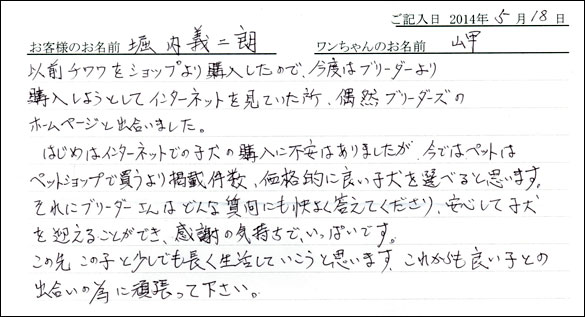 ご記入日 2014年 5月 18日
お客様のお名前 堀内義二朗 ワンちゃんのお名前 岬
以前チワワをショップより購入したので、今度はブリーダーより
購入しようとしてインターネットを見ていた所、偶然ブリーダーズの
ホームページと出合いました。
はじめはインターネットでの子犬の購入に不安はありましたが、今ではペットは
ペットショップで買うより掲載件数、価格的に良い子犬を選べると思います。
それにブリーダーさんはどんな質問にも快よく答えてくださり、安心して子犬
を迎えることができ、感謝の気持ちで、いっぱいです。
この先この子と少しでも長く生活していこうと思います。これからも良い子との
出合いの為に頑張って下さい。